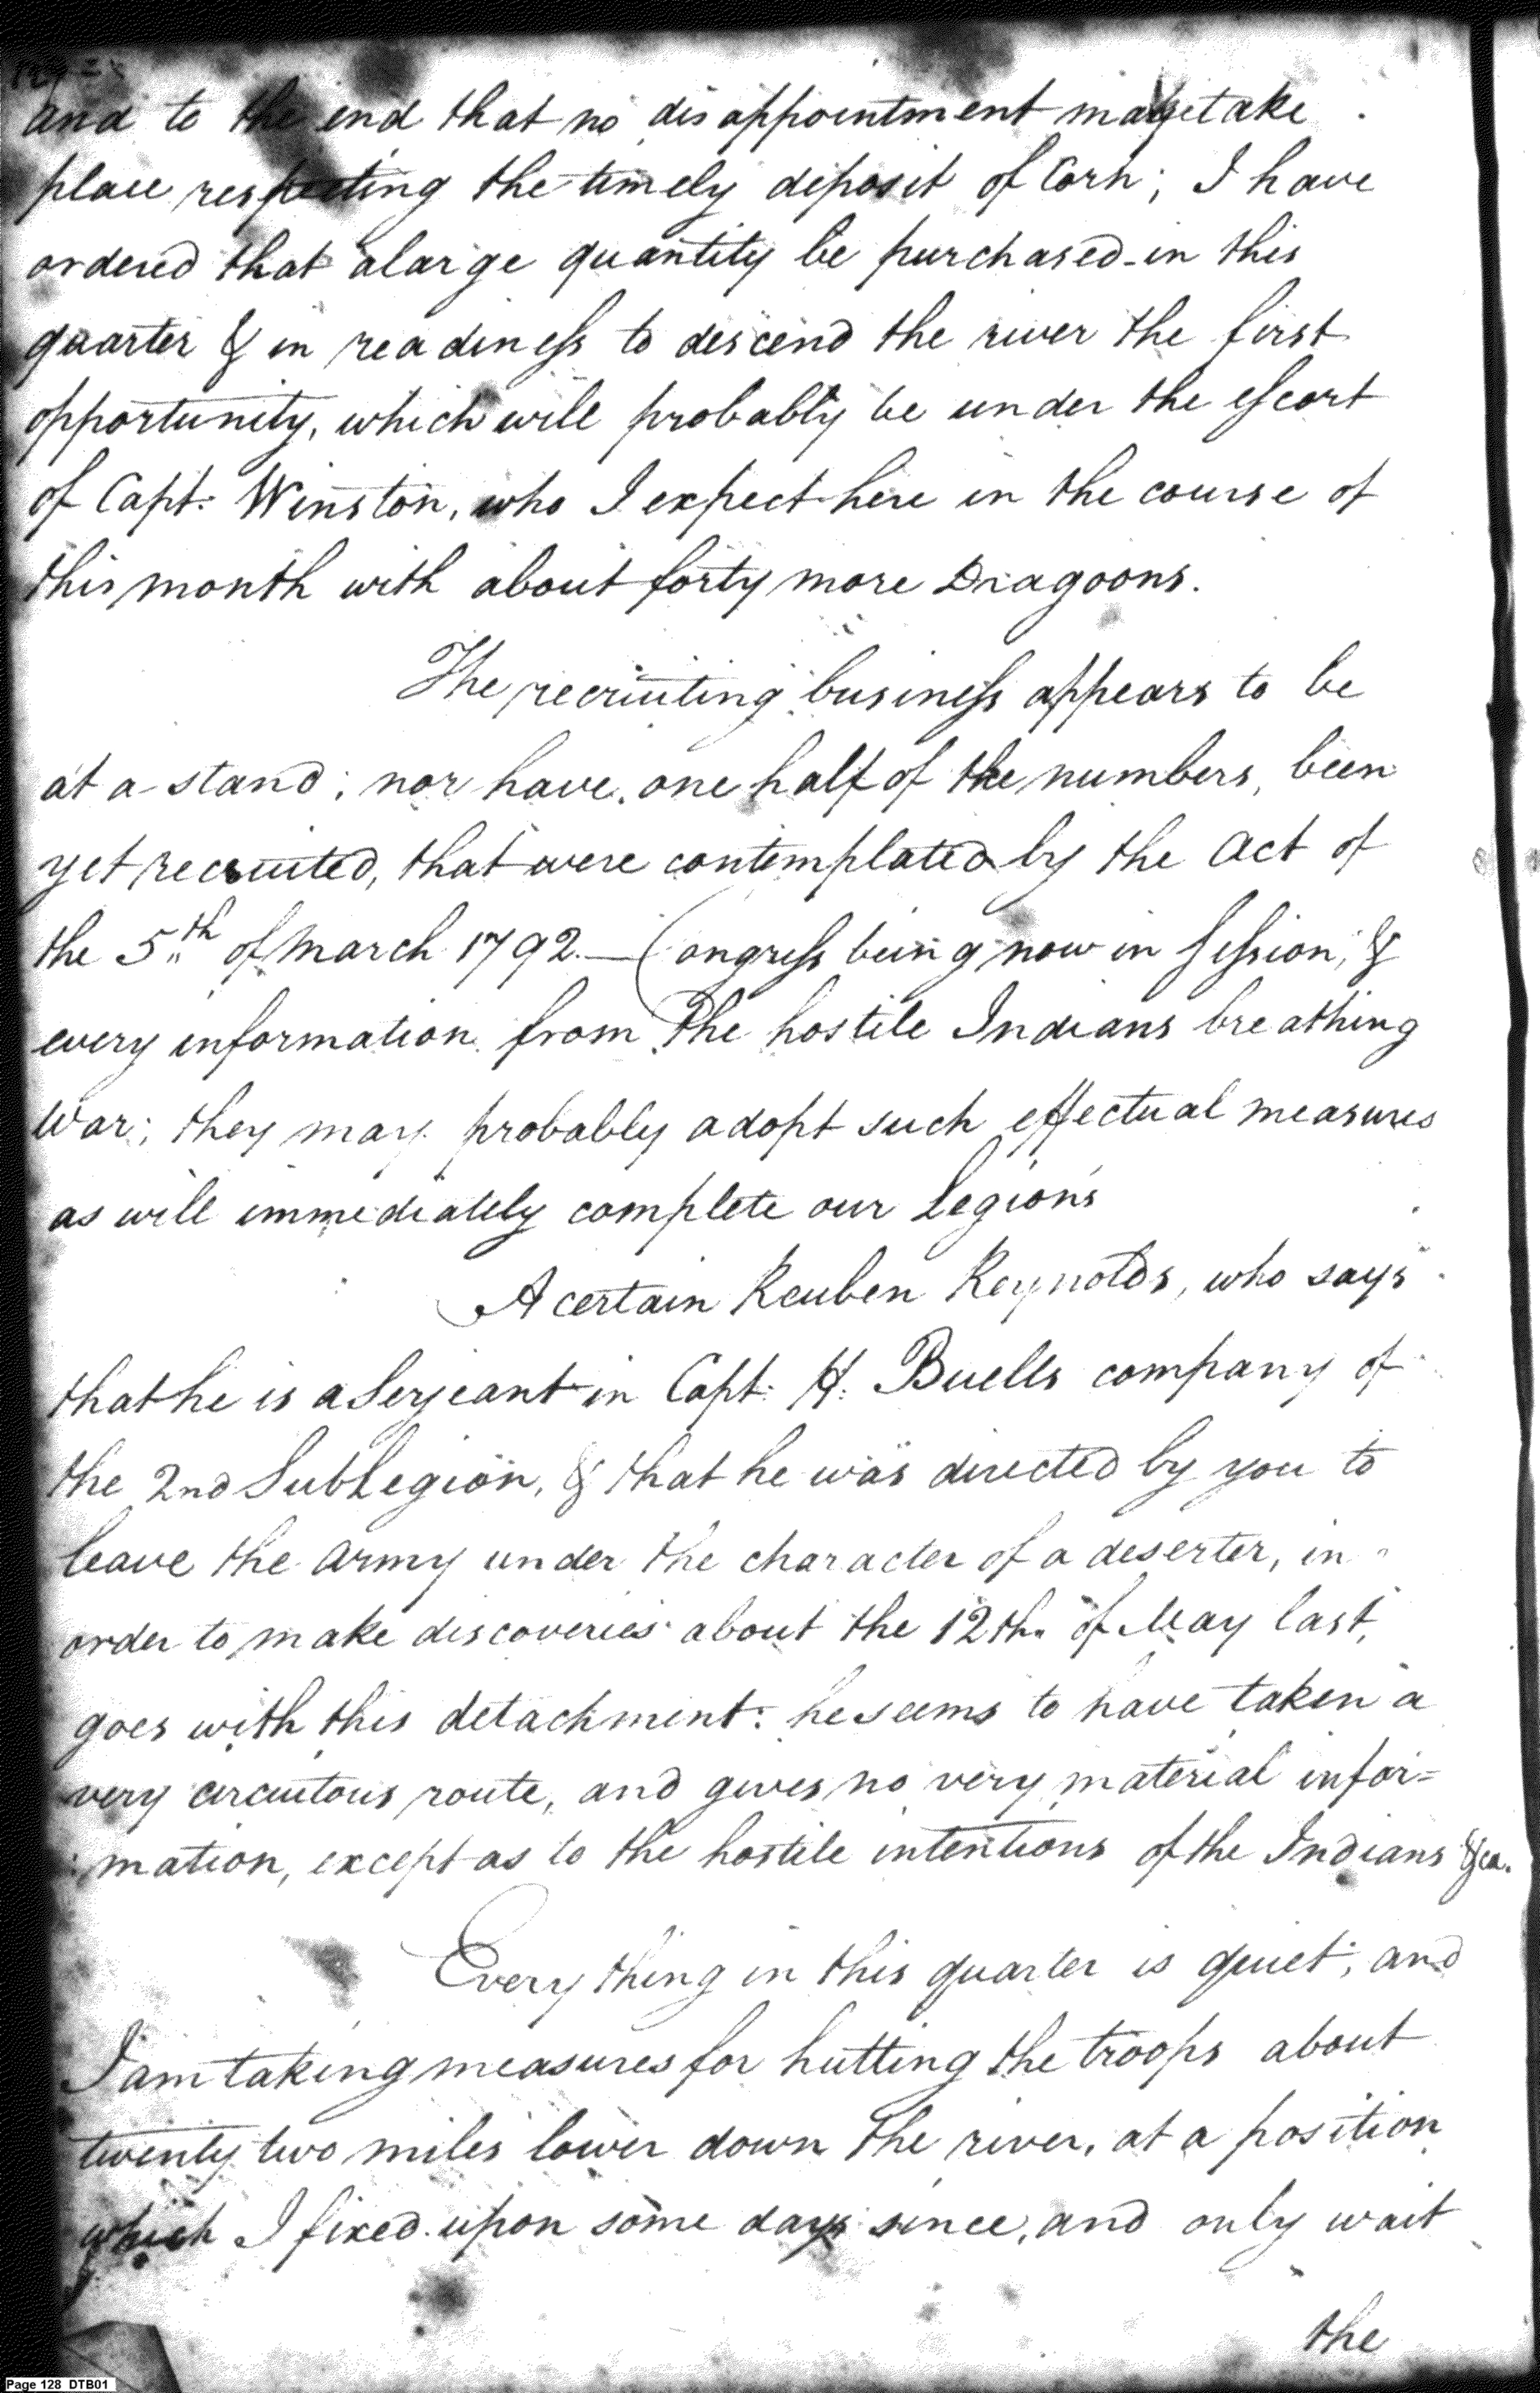 and to the end that no disappointment may take
place respecting the timely deposit of Corn; I have
ordered that a large quantity be purchased in this
quarter & in readiness to descend the river the first
opportunity, which will probably be under the escort
of Capt. Winston, who I expect here in the course of
this month with about forty more Dragoons.
The recruiting business appears to be
at a stand; nor have one half of the numbers, been
yet recruited, that were contemplated by the Act of
the 5th of March 1792.— Congress being now in session, &
every information from the hostile Indians breathing
War; they may probably adopt such effectual measures
as will immediately complete our Legions
A certain Reuben Reynolds, who says
that he is a Serjeant in Capt. H. Buells company of
the 2nd SubLegion, & that he was directed by you to
leave the Army under the character of a deserter, in
order to make discoveries about the 12th of May last,
goes with this detachment: he seems to have taken a
very circuitous route, and gives no very material infor=
:mation, except as to the hostile intentions of the Indians &ca.
Every thing in this quarter is quiet; and
I am taking measures for hutting the troops about
twenty two miles lower down the river, at a position
which I fixed upon some days since, and only wait
the
Page 128 DTB01